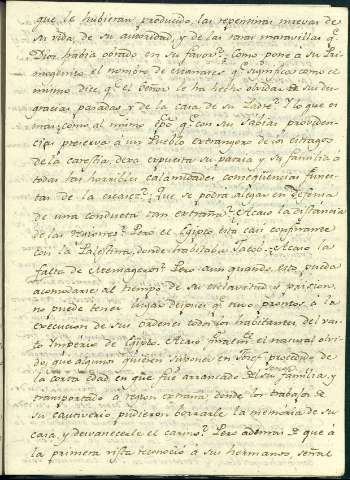 que le hubieran producido, las repentinas nuevas de
su vida, de su autoridad y de las raras maravillas q.
Dios habia obrado en su favor. Como pone à su Pri-
mogenito el nombre de Manases q. significa como el
mismo dice, q. el Señor le ha hecho olvidar de sus des-
gracias pasadas y de la casa de su Padre? Y lo que es
mas, como al mismo tpo q. con sus sabias providen-
cias preserva à un Pueblo extrangero de los estragos
de la carestia, dexa expuesta su patria y su familia à
todas las horribles calamidades consequencias funes-
tas de la escasez? Que se podrà alegar en defensa
de una conducta tan extraña? Acaso la distancia
de las regiones? Pero el Egipto està casi confinante
con la Palestina, donde habitaba Jacob. Acaso la
falta de Mensageros? Pero aun quando esto pueda
acomodarse al tiempo de su esclavitud y prision,
no puede tener lugar despues q. tuvo prontos à la
execucion de sus ordenes todos los habitantes del vas-
to Imperio de Egipto. Acaso finalmte el natural olvi-
do, que algunos quieren suponer en Josef procedido de
la corta edad en que fuè arrancado de su familia, y
transportado à region extraña, donde los trabajos de
su cautiverio pudieron borrarle la memoria de su
casa, y desvanecerle el cariño? Pero ademàs de que à
la primera vista reconociò à sus hermanos, señal